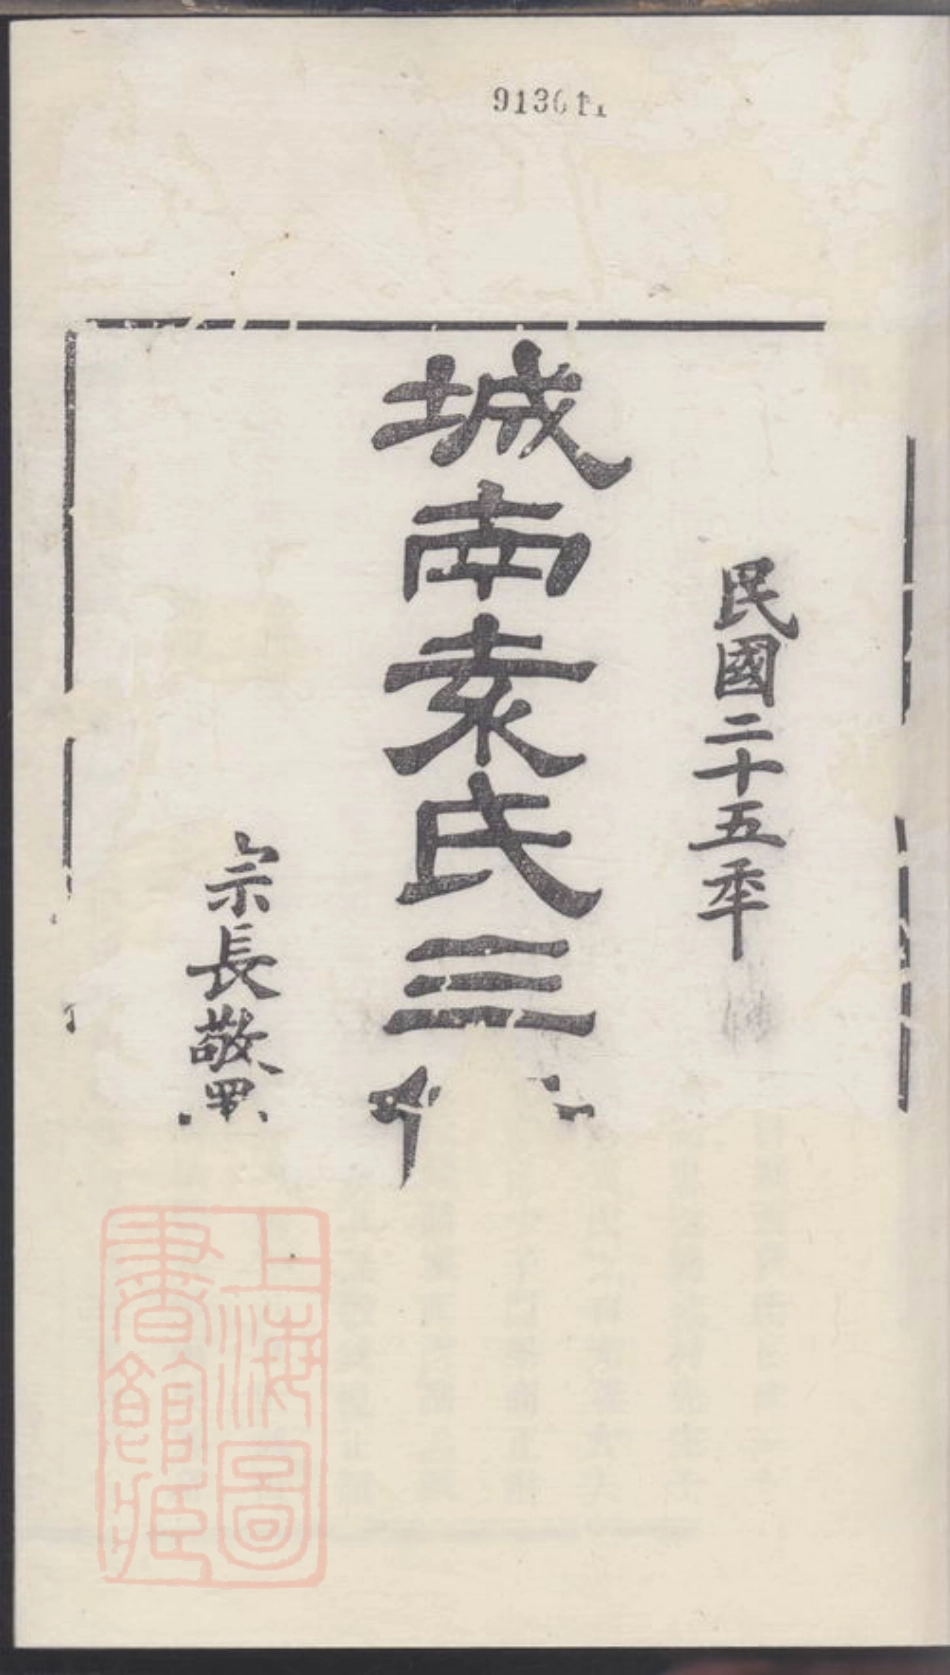 民國二十五年
城南袁氏三
宗長敬
上海圖
書館藏